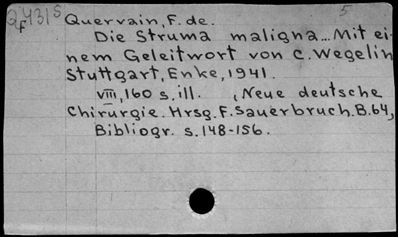 Quervain, F. de. 5
Die Struma maligna... Mit ei-
nem Geleitwort von C. Wegelin
Stuttgart, Enke, 1941.
VIII, 160 s. ill. (Neue deutsche
Chirurgie. Hrsg. F. Sauerbruch. B.64,
Bibliogr. s.148-156.